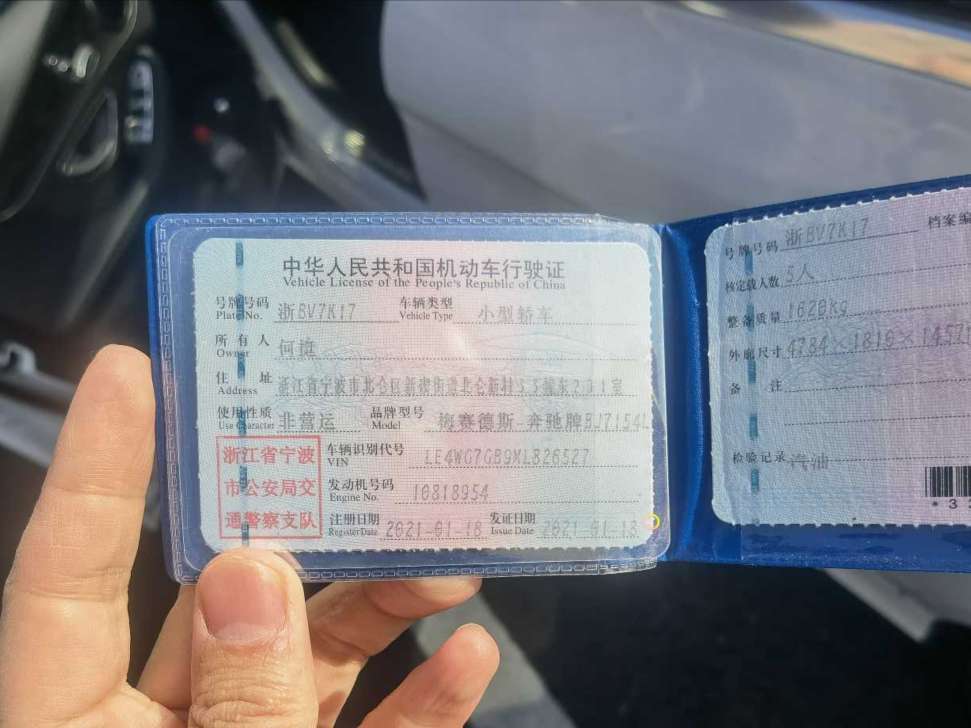 中华人民共和国机动车行驶证
Vehicle License of the People's Republic of China
号牌号码 浙BV7K17 车辆类型 小型轿车
Plate No. Vehicle Type
所有人 何挺
Owner
住址
Address 浙江省宁波市北仑区新碶街道北仑新村55幢东201室
使用性质 非营运 品牌型号 梅赛德斯-奔驰牌BJ7154L
Use Character Model
浙江省宁波
市公安局交
通警察支队
车辆识别代号 LE4WG7GB9ML826527
VIN
发动机号码 10818954
Engine No.
注册日期 2021-01-18 发证日期 2021-01-18
Register Date Issue Date
号牌号码 浙BV7K17 档案编
核定载人数 5人
整备质量 1628kg
外廓尺寸 4784×1810×1457
备注
检验记录 汽油
*3